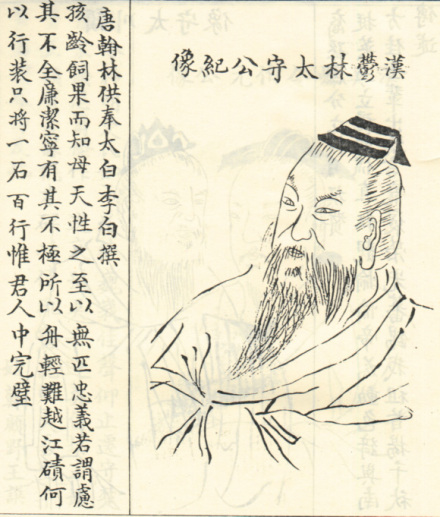 漢鬱林太守公紀像
唐翰林供奉太白李白撰
孩齡飼果而知母天性之至以無匹忠義若謂慮
其不全廉潔寧有其不極所以舟輕難越江磧何
以行装只將一石百行惟君人中完璧